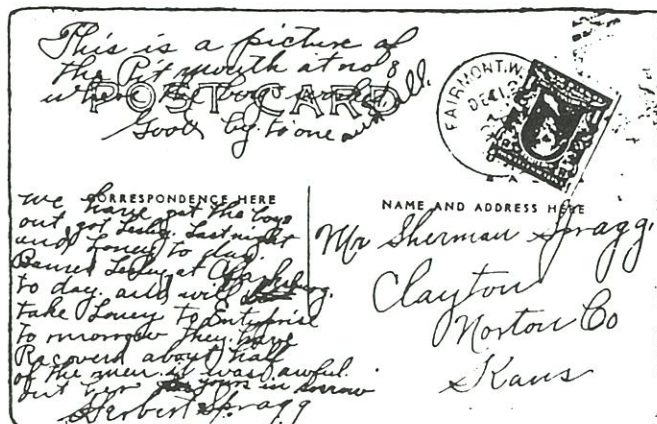 This is a picture of
the Pit mouth at no 8
where the boys work.
Good by to one and all.
POST CARD
FAIRMONT, W.
DEC 12
CORRESPONDENCE HERE
we have got the boys
out got Lesley Last night
and Loney to day.
Buried Lesley at Clarksburg.
to day. and will
take Loney to Enterprise
to morrow they have
Recoverd about half
of the men it was awful.
out here yours in sorrow
Herbert Spragg
NAME AND ADDRESS HERE
Mr Sherman Spragg.
Clayton
Norton Co
Kans